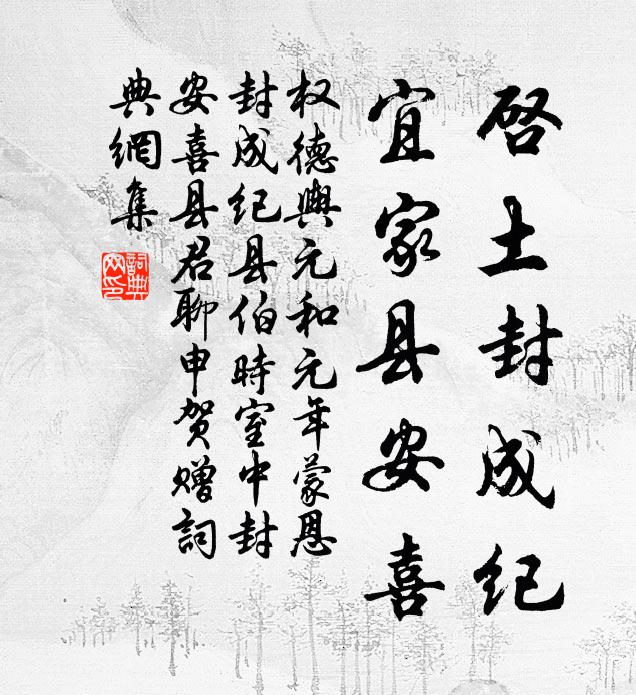 啓土封成纪
宜家县安喜
权德舆元和元年蒙恩
封成纪县伯時室中封
安喜县君聊申贺赠詞
典網集
詞典
网印